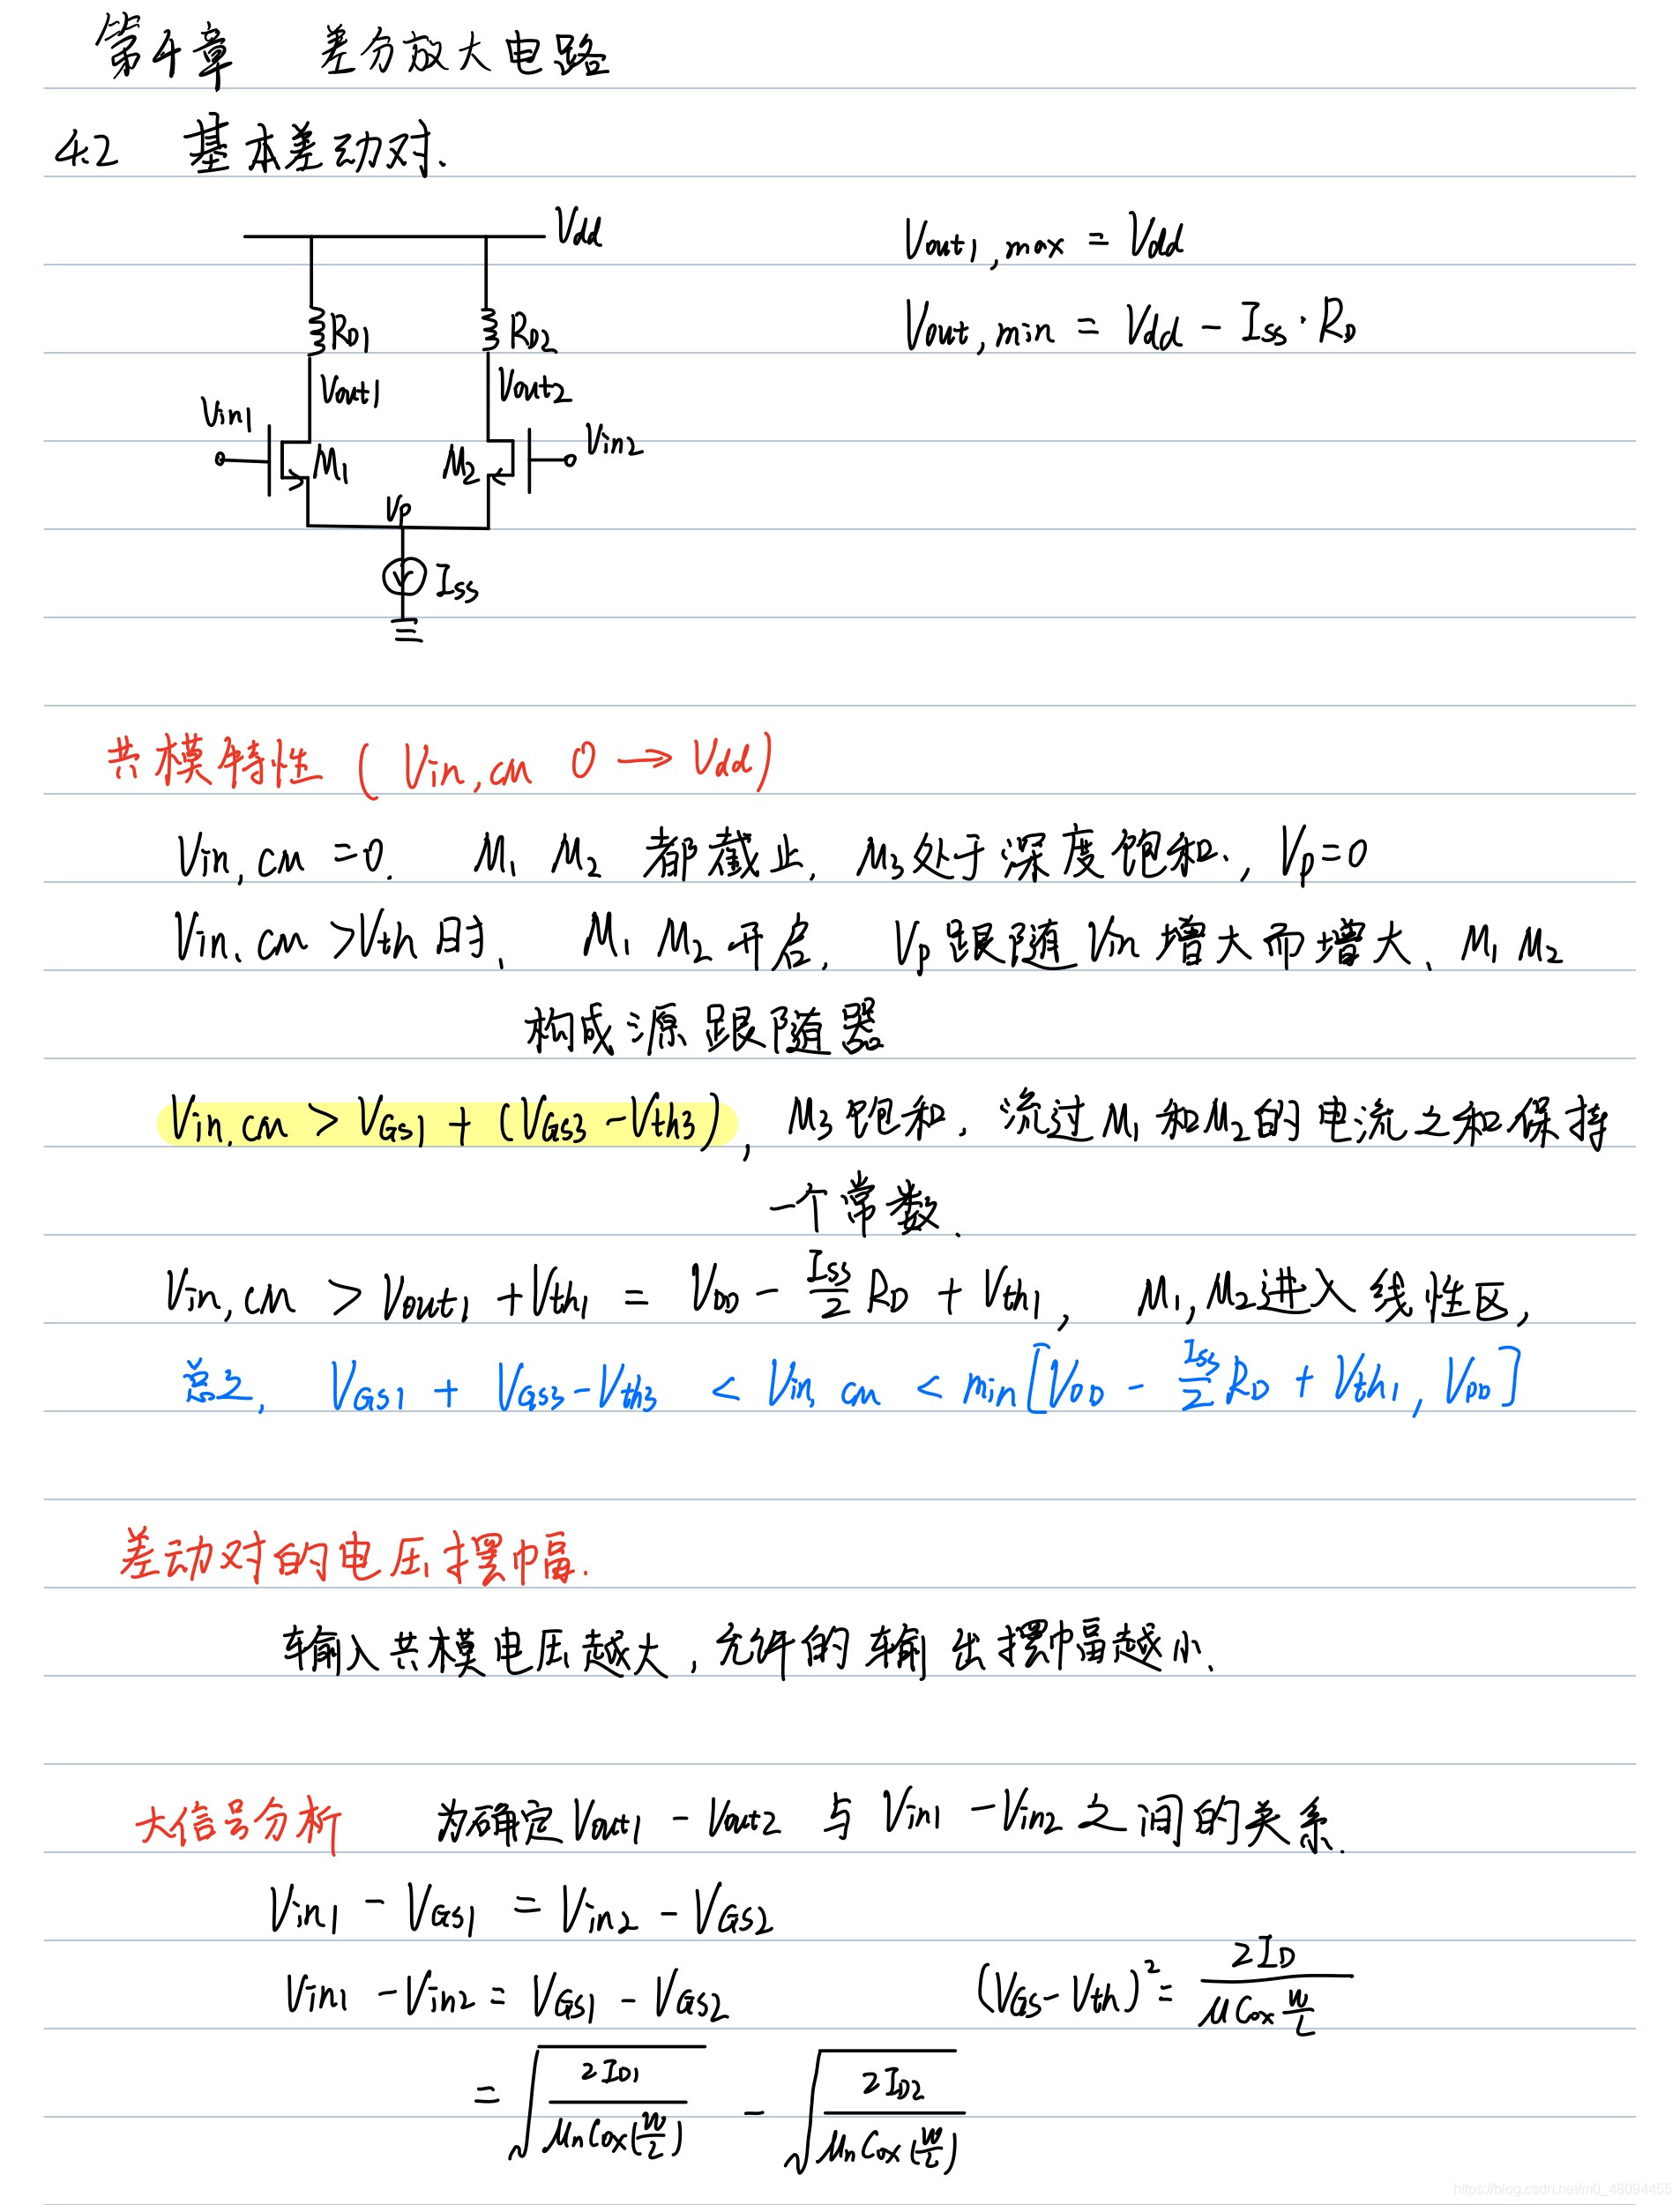 第4章 差分放大电路
4.2 基本差动对.
Vdd
Vout1,max = Vdd
RD1 RD2
Vout,min = Vdd - Iss·RD
Vout1 Vout2
Vin1 Vin2
M1 M2
Vp
Iss
共模特性 ( Vin,cm 0 → Vdd)
Vin,cm =0. M1 M2 都截止, M3处于深度饱和., Vp=0
Vin,cm >Vth 时, M1 M2 开启, Vp 跟随 Vin 增大而增大、M1 M2
构成源跟随器
Vin,cm > VGS1 + (VGS3 -Vth3), M3 饱和, 流过 M1 和M2的电流之和保持
一个常数.
Vin,cm > Vout1 +Vth1 = VDD - Iss/2 RD + Vth1, M1, M2进入线性区,
总之, VGS1 + VGS3-Vth3 < Vin,cm < min[VDD - Iss/2 RD + Vth1, VDD]
差动对的电压摆幅.
输入共模电压越大, 允许的输出摆幅越小.
大信号分析 为确定 Vout1 - Vout2 与 Vin1 -Vin2 之间的关系.
Vin1 - VGS1 = Vin2 - VGS2
Vin1 -Vin2 = VGS1 - VGS2 (VGS-Vth)² = 2ID / μCox W/L
= √(2ID1 / μnCox(W/L)) - √(2ID2 / μnCox(W/L))
https://blog.csdn.net/m0_48094455